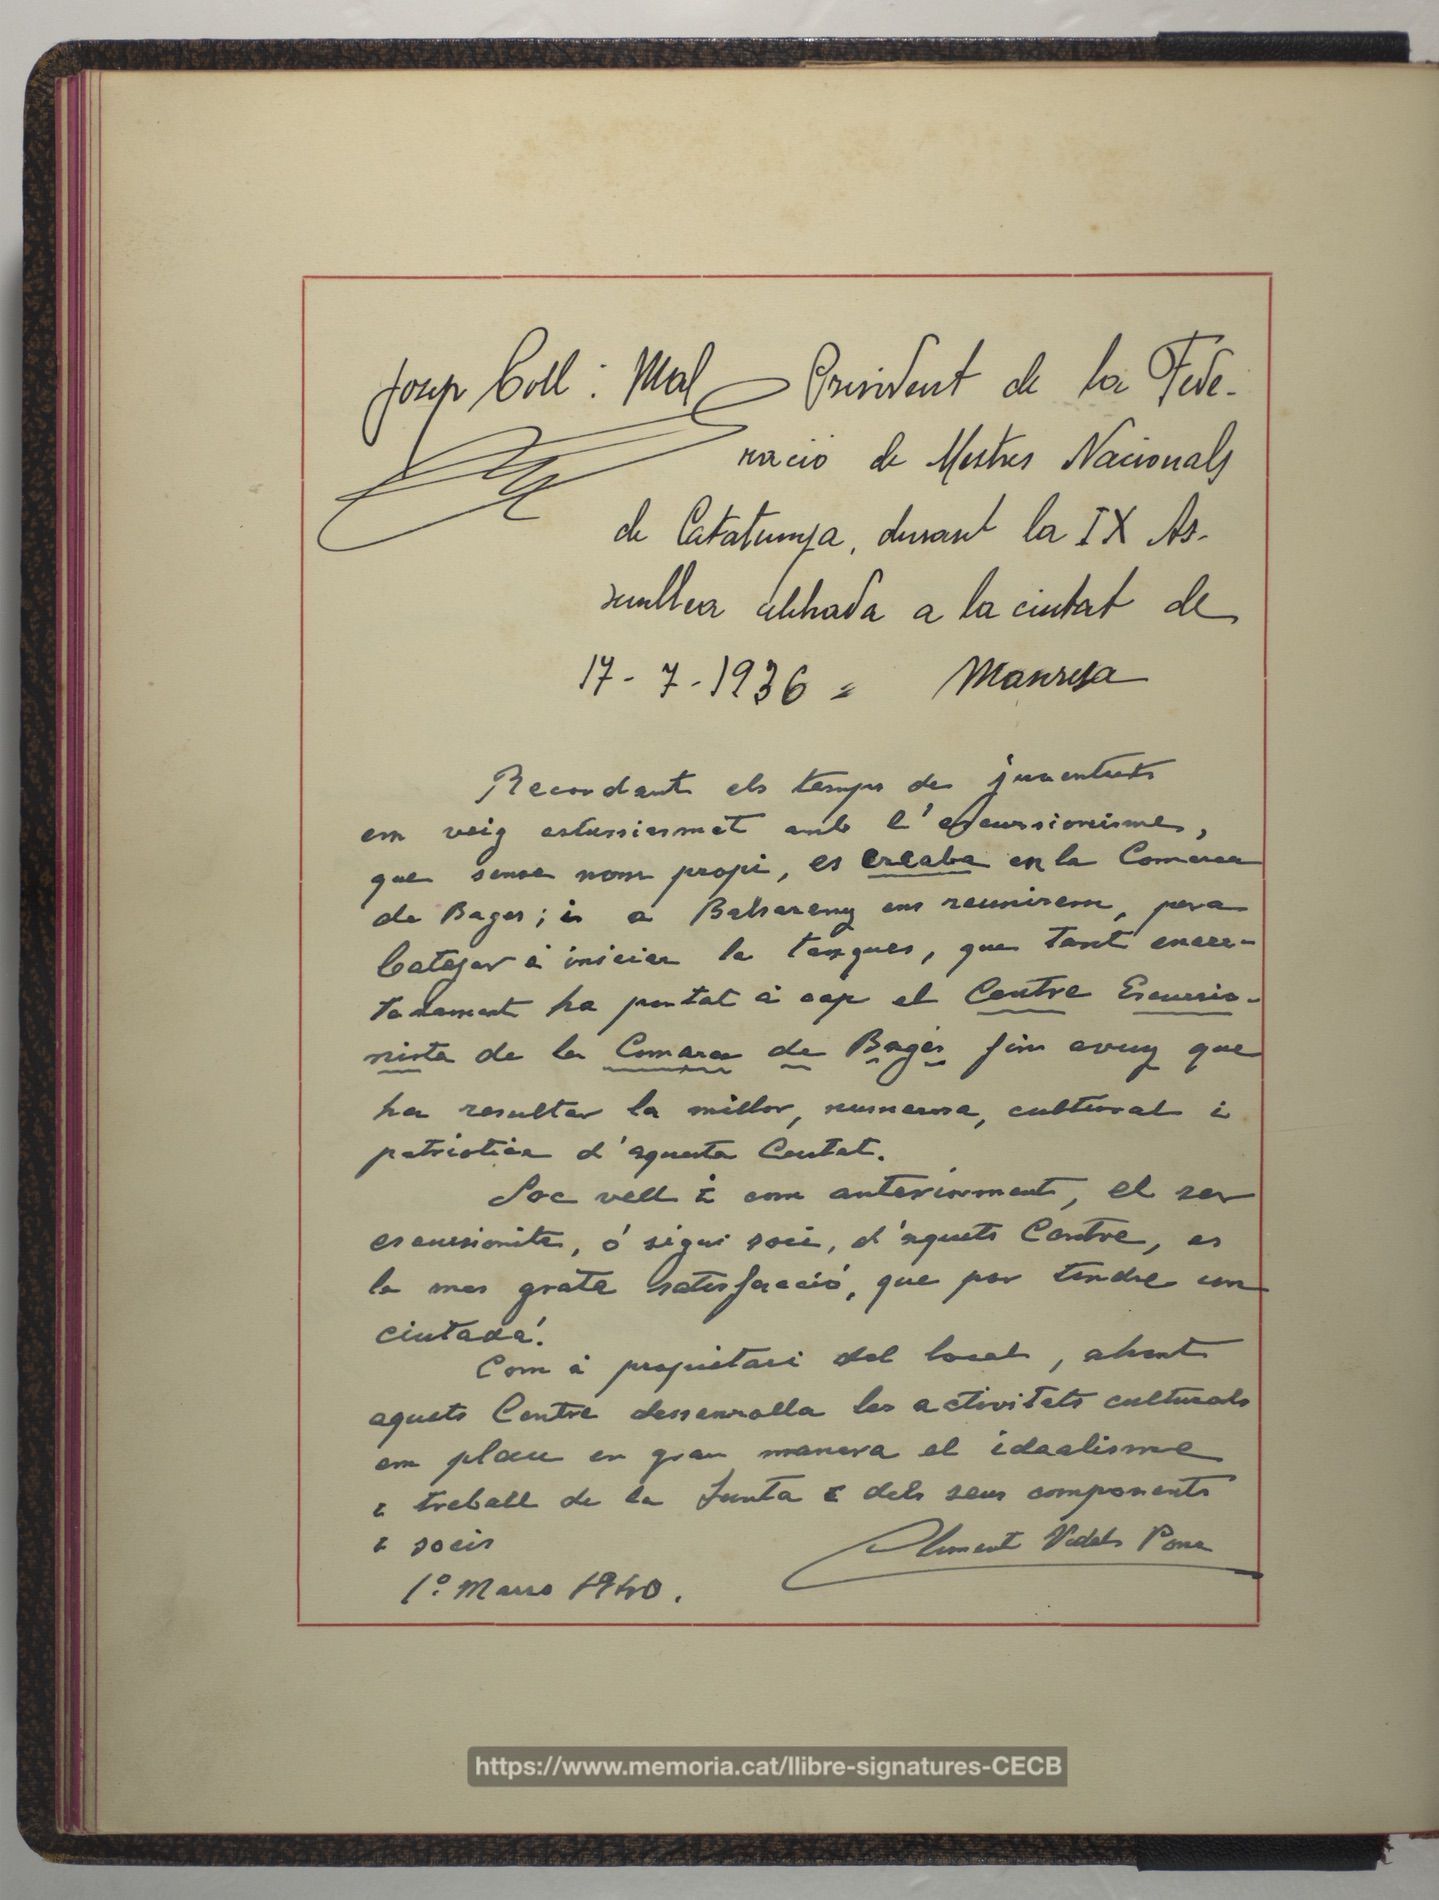 Josep Coll i Mas President de la Fede-
ració de Mestres Nacionals
de Catalunya, durant la IX As-
semblea celebrada a la ciutat de
17-7-1936 = Manresa
Recordant els temps de juventuts
em veig entussiasmat amb l'escursionisme,
que sense nom propi, es creaba en la Comarca
de Bages; i a Balsareny ens reunirem, pera
batejar i iniciar la tasques, que tant encer-
tadament ha portat á cap el Centre Escursio-
nista de la Comarca de Bages fins avuy que
ha resultar la millor, numerosa, cultural i
patriotica d'aquesta Ciutat.
Soc vell i com anteriorment, el ser
escursionita, ó sigui soci, d'aquets Centre, es
la mes grata satisfacció, que pot tindre un
ciutadá.
Com á propietari del local, ahont
aquets Centre dessenrolla les activitats culturals
em plau en gran manera el idaalisme
i treball de la Junta i dels seus components
i socis
Climent Vidals Pons
1º Mars 1940.
https://www.memoria.cat/llibre-signatures-CECB